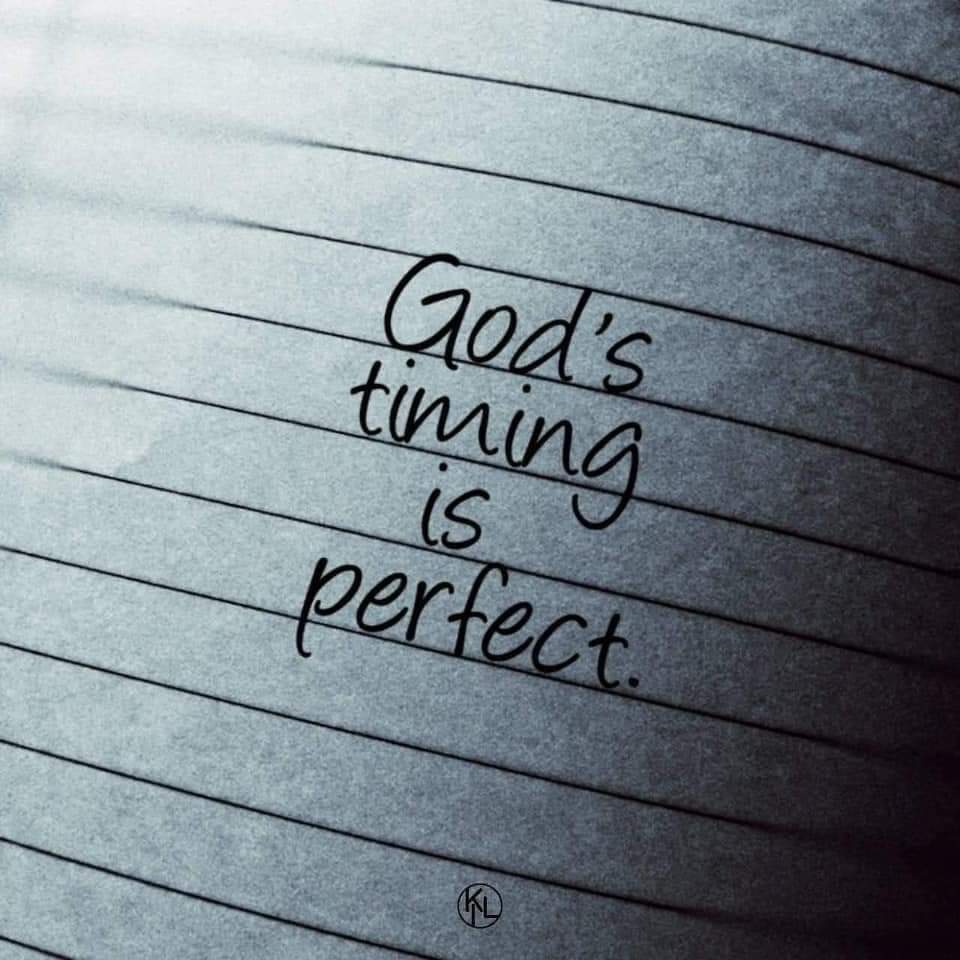 God's
timing
is
perfect.
KL